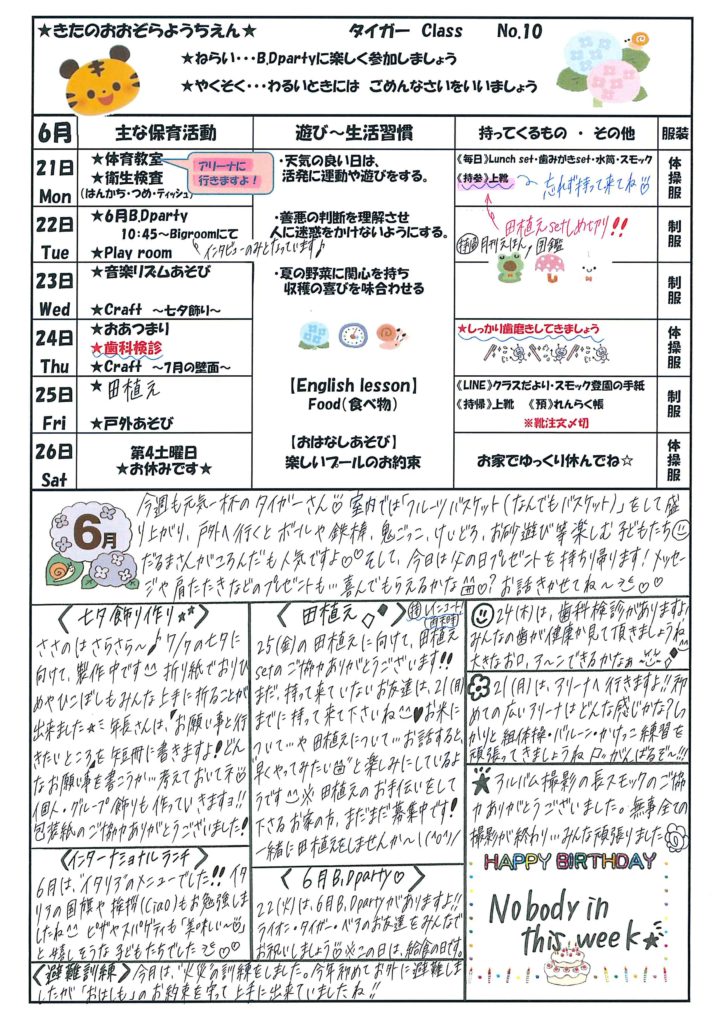 ★きたのおおぞらようちえん★　タイガー Class　No.10
★ねらい・・・B.Dpartyに楽しく参加しましょう
★やくそく・・・わるいときには ごめんなさいをいいましょう
6月　主な保育活動　遊び～生活習慣　持ってくるもの ・ その他　服装
21日 Mon
★体育教室
アリーナに行きますよ！
★衛生検査
(はんかち・つめ・ティッシュ)
・天気の良い日は、
活発に運動や遊びをする。
《毎日》Lunch set・歯みがきset・水筒・スモック
《持参》上靴　忘れず持って来てね
体操服
22日 Tue
★6月B.Dparty
10:45～Bigroomにて
インタビューのみとなっています♪
★Play room
・善悪の判断を理解させ
人に迷惑をかけないようにする。
田植えsetしめ切り!!
月刊えほん、図鑑
制服
23日 Wed
★音楽リズムあそび
★Craft ～七夕飾り～
・夏の野菜に関心を持ち
収穫の喜びを味合わせる
制服
24日 Thu
★おあつまり
★歯科検診
★Craft ～7月の壁面～
★しっかり歯磨きしてきましょう
体操服
25日 Fri
★田植え
★戸外あそび
【English lesson】
Food(食べ物)
《LINE》クラスだより・スモック登園の手紙
《持帰》上靴 《預》れんらく帳
※靴注文〆切
制服
26日 Sat
第4土曜日
★お休みです★
【おはなしあそび】
楽しいプールのお約束
お家でゆっくり休んでね☆
体操服
6月
今週も元気一杯のタイガーさん♡室内では「フルーツバスケット(なんでもバスケット)」をして盛
り上がり、戸外へ行くと ボールや鉄棒、鬼ごっこ、けいどろ、お砂遊び等楽しむ子どもたち
だるまさんがころんだも人気ですよ♡♡そして、今日は父の日プレゼントを持ち帰ります！メッセー
ジや肩たたきなどのプレゼントも…喜んでもらえるかな♡？お話きかせてね～♡♡
〈七夕飾り作り☆☆〉
ささのはさらさら～♪7/7の七夕に
向けて、製作中です 折り紙でおりひ
めやひこぼしもみんな上手に折ることが
出来ました☆ 年長さんは、お願い事と行
きたいところを短冊に書きますよ！どん
なお願い事を書こうか…考えておいてネ
個人・グループ飾りも作っていきますヨ!!
包装紙のご協力ありがとうございました！
〈田植え〉
25(金)の田植えに向けて、田植え
setのご協力ありがとうございます!!
まだ、持って来ていないお友達は、21(月)
までに持って来て下さいね♥お米に
ついて…や田植えについて…お話すると、
"早くやってみたい"と楽しみにしているよ
うです ※田植えのお手伝いをして
下さるお家の方、まだまだ募集中です！
一緒に田植えをしませんか～\(^o^)/
24(木)は、歯科検診がありますよ
みんなの歯が健康か見て頂きましょうね
大きなお口、アーンできるかなぁ～
21(月)は、アリーナへ行きますよ!!初
めての広いアリーナはどんな感じかな？しっ
かりと組体操・バルーン・かけっこ練習を
頑張ってきましょうね。がんばるぞ～!!!
★アルバム撮影の長スモックのご協
力ありがとうございました。無事全ての
撮影が終わり…みんな頑張りました
〈インターナショナルランチ〉
6月は、"イタリア"のメニューでした!!イタ
リアの国旗や挨拶(Ciao)もお勉強しま
したね ピザやスパゲティも「美味しい～」
と嬉しそうな子どもたちでした♡♡
〈6月B.Dparty♡〉
22(火)は、6月B.Dpartyがありますよ!!
ライオン・タイガー・ベアのお友達をみんなで
お祝いしましょう ※この日は、給食の日です。
HAPPY BIRTHDAY
Nobody in
this week★
〈避難訓練〉今月は、"火災"の訓練をしました。今年初めてお外に避難しま
したが「おはしも」のお約束を守って上手に出来ていましたね!!